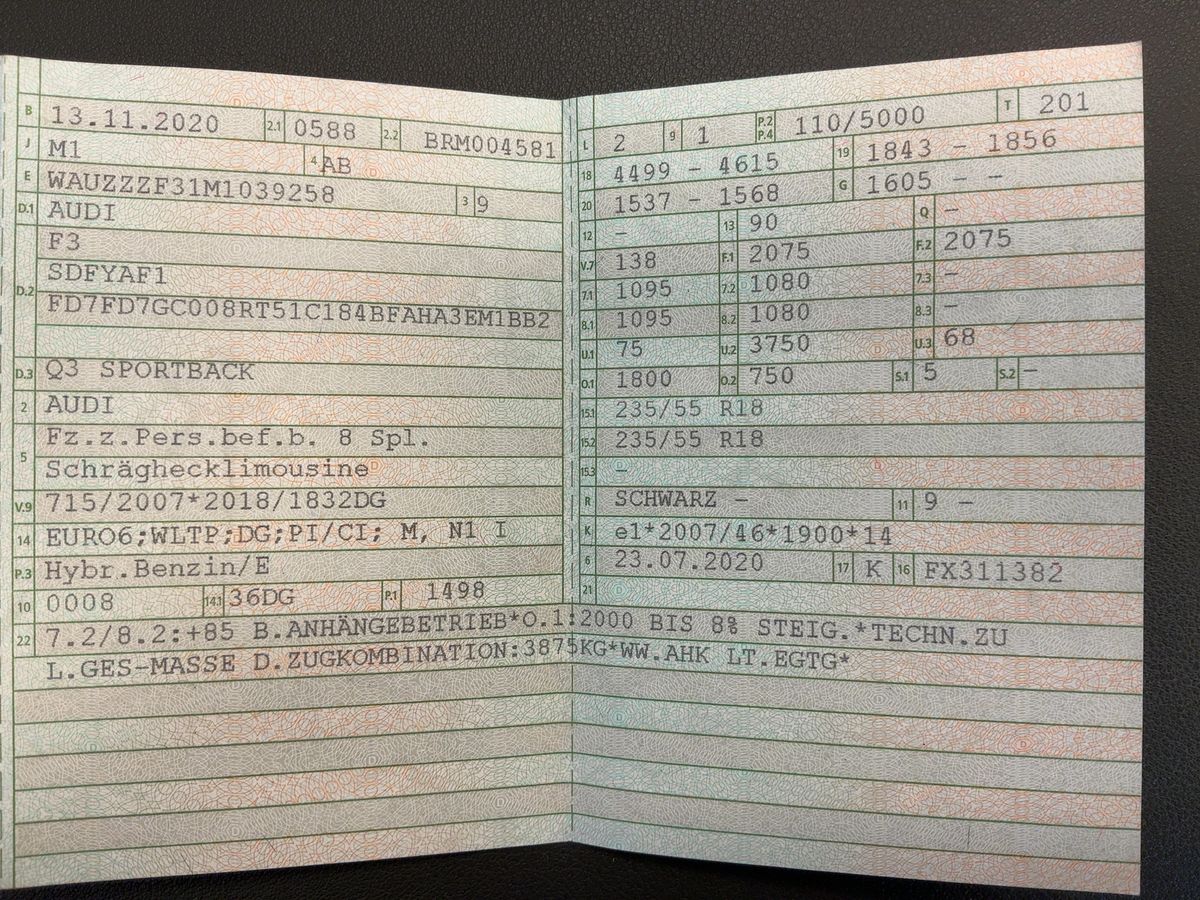 B 13.11.2020 2.1 0588 2.2 BRM004581
J M1 4 AB
E WAUZZZF31M1039258 3 9
D.1 AUDI
D.2 F3
SDFYAF1
FD7FD7GC008RT51C184BFAHA3EM1BB2
D.3 Q3 SPORTBACK
2 AUDI
5 Fz.z.Pers.bef.b. 8 Spl.
Schräghecklimousine
V.9 715/2007*2018/1832DG
14 EURO6;WLTP;DG;PI/CI; M, N1 I
P.3 Hybr.Benzin/E
10 0008 14.1 36DG P.1 1498
L 2 9 1 P.2 P.4 110/5000 T 201
18 4499 - 4615 19 1843 - 1856
20 1537 - 1568 G 1605 - -
12 - 13 90 Q -
V.7 138 F.1 2075 F.2 2075
7.1 1095 7.2 1080 7.3 -
8.1 1095 8.2 1080 8.3 -
U.1 75 U.2 3750 U.3 68
O.1 1800 O.2 750 S.1 5 S.2 -
15.1 235/55 R18
15.2 235/55 R18
15.3 -
R SCHWARZ - 11 9 -
K e1*2007/46*1900*14
6 23.07.2020 17 K 16 FX311382
21
22 7.2/8.2:+85 B.ANHÄNGEBETRIEB*O.1:2000 BIS 8% STEIG.*TECHN.ZU
L.GES-MASSE D.ZUGKOMBINATION:3875KG*WW.AHK LT.EGTG*